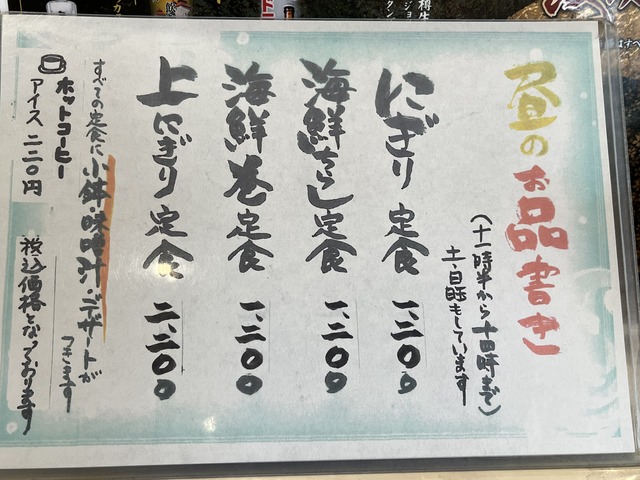 昼のお品書き
(十一時半から十四時まで)
土、日、昼もしています
にぎり定食 一、三〇〇
海鮮ちらし定食 一、三〇〇
海鮮巻定食 一、三〇〇
上にぎり定食 二、二〇〇
すべての定食に小鉢・味噌汁・デザートが
つきます
ホットコーヒー
アイス 二二〇円
税込価格となっております